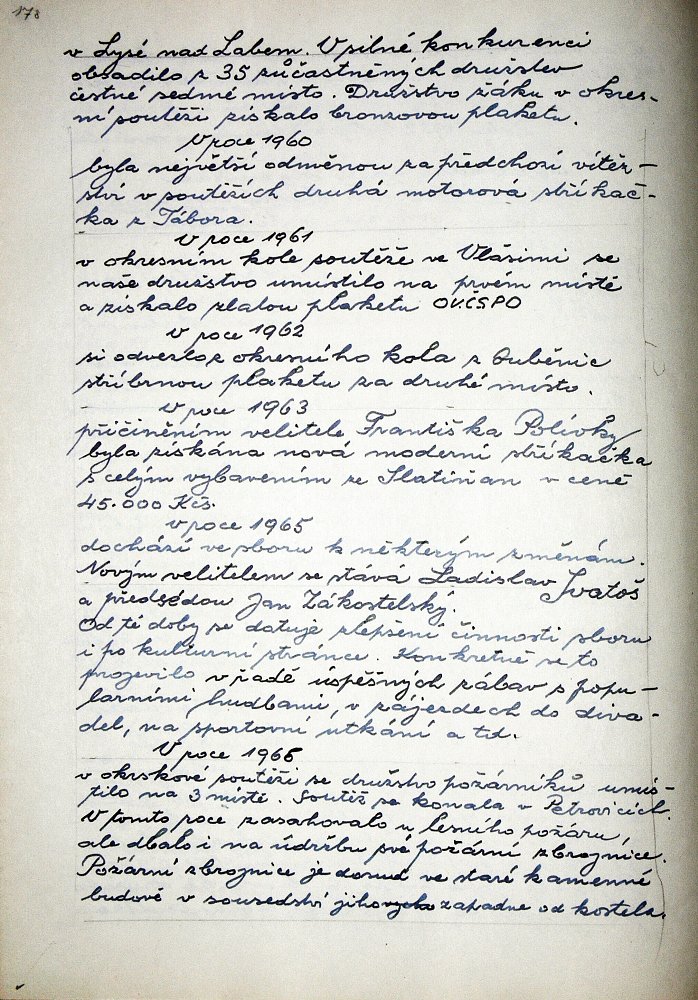 178
v Lysé nad Labem. V silné konkurenci
obsadilo z 35 zúčastněných družstev
čestné sedmé místo. Družstvo žáku v okres-
ní soutěži získalo bronzovou plaketu.
V roce 1960
byla největší odměnou za předchozí vítěz-
ství v soutěžích druhá motorová stříkač-
ka z Tábora.
V roce 1961
v okresním kole soutěže ve Vlašimi se
naše družstvo umístilo na prvém místě
a získalo zlatou plaketu OV.ČSPO
v roce 1962
si odvezlo z okresního kola z
stříbrnou plaketu za druhé místo.
v roce 1963
přičiněním velitele Františka Polívky
byla získána nová moderní stříkačka
s celým vybavením ze Slatiňan v ceně
45.000 Kčs.
v roce 1965
dochází ve sboru k některým změnám.
Novým velitelem se stává Ladislav Ivatoš
a předsedou Jan Zákostelský.
Od té doby se datuje zlepšení činnosti sboru
i po kulturní stránce. Konkretně se to
projevilo v řadě úspěšných zábav s popu-
larními hudbami, v zájezdech do diva-
del, na sportovní utkání a td.
V roce 1966
v okrskové soutěži se družstvo požárníků umís-
tilo na 3 místě. Soutěž se konala v Petrovicích.
V tomto roce zasahovalo u lesního požáru,
ale dbalo i na údržbu své požární zbrojnice.
Požární zbrojnice je dosud ve staré kamenné
budově v sousedství západne od kostela.